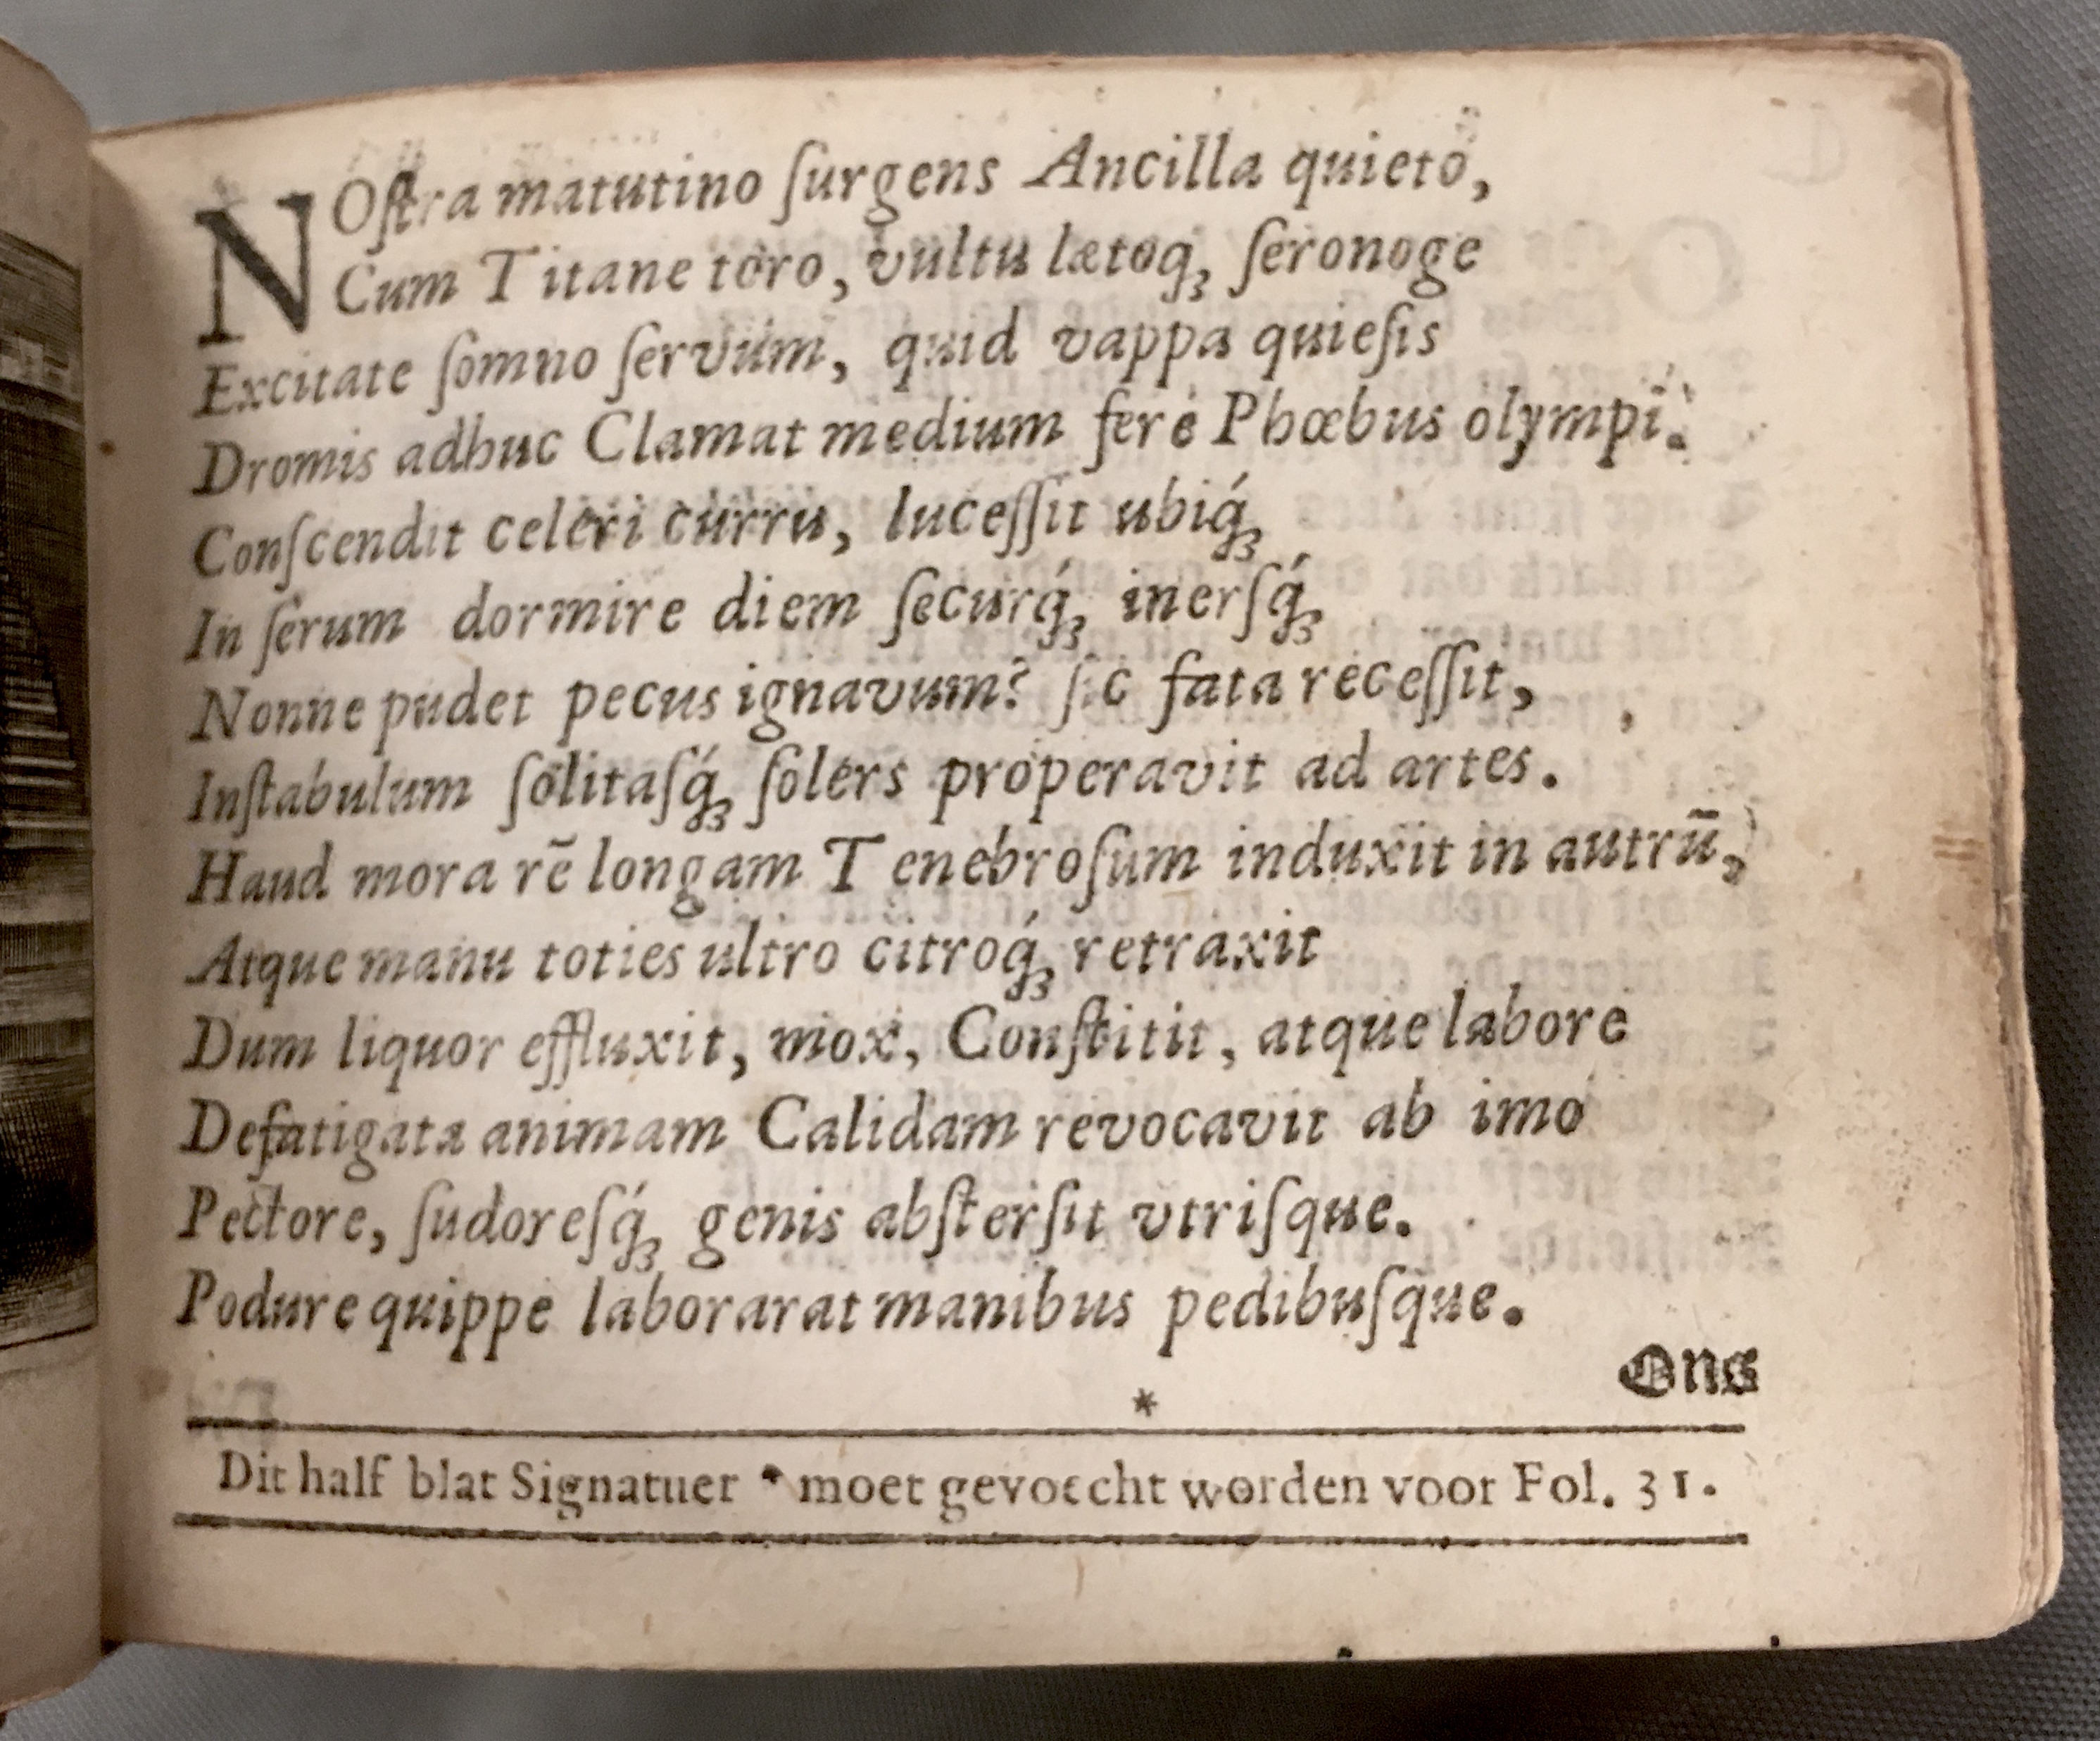 NOſtra matutino ſurgens Ancilla quieto,
Cum Titane toro, vultu lætoq́ꝫ ſeronoge
Excitate ſomno ſervum, quid vappa quieſis
Dromis adhuc Clamat medium feré Phœbus olympi.
Conſcendit celeri curru, luceſſit ubiq́ꝫ
In ſerum dormire diem ſecurq́ꝫ inerſq́ꝫ
Nonne pudet pecus ignavum? ſic fata receſſit,
Inſtabulum ſolitaſq́ꝫ ſolers properavit ad artes.
Haud mora rē longam Tenebroſum induxit in autrū,
Atque manu toties ultro citroq́ꝫ retraxit
Dum liquor effluxit, mox, Conſtitit, atque labore
Defatigata animam Calidam revocavit ab imo
Pectore, ſudoreſq́ꝫ genis abſterſit vtriſque.
Podure quippe laborarat manibus pedibuſque.
Ons
*
Dit half blat Signatuer * moet gevoecht worden voor Fol. 31.